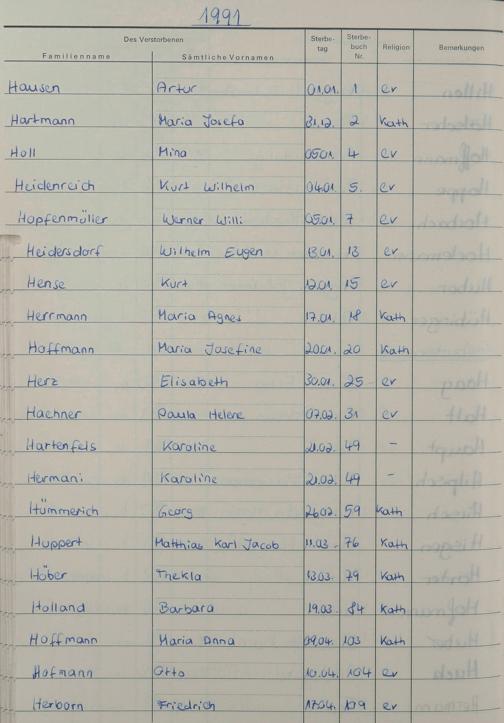 1991
Des Verstorbenen Sterbe- Sterbe-
Familienname Sämtliche Vornamen tag buch Nr. Religion Bemerkungen
Hausen Artur 01.01. 1 ev
Hartmann Maria Josefa 31.12. 2 Kath
Holl Mina 05.01. 4 ev
Heidenreich Kurt Wilhelm 04.01. 5. ev
Hopfenmüller Werner Willi 05.01. 7 ev
Heidersdorf Wilhelm Eugen 13.01. 13 ev
Hense Kurt 12.01. 15 ev
Herrmann Maria Agnes 17.01. 18 Kath
Hoffmann Maria Josefine 20.01. 20 Kath
Herz Elisabeth 30.01. 25 ev
Haehner Paula Helene 07.02. 31 ev
Hartenfels Karoline 21.02. 49 -
Hermani Karoline 21.02. 49 -
Hümmerich Georg 26.02. 59 Kath
Huppert Matthias Karl Jacob 11.03. 76 Kath
Höber Thekla 13.03. 79 Kath
Holland Barbara 19.03. 84 Kath
Hoffmann Maria Anna 09.04. 103 Kath
Hofmann Otto 10.04. 104 ev
Herborn Friedrich 17.04. 109 ev